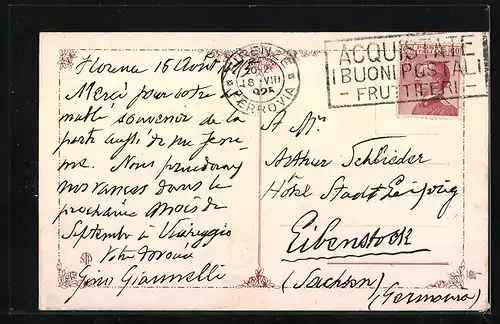 Florence 16 Août 1925
Merci pour votre ai-
mable souvenir de la
part aussi de ma fem-
me. Nous prendrons
nos vacances dans le
prochain mois de
Septembre à Viareggio
Votre dévoué
Gino Giannelli
FIRENZE
18 VIII
1925
FERROVIA
ACQUISTATE
I BUONI POSTALI
- FRUTTIFERI -
60
A Mr.
Arthur Schlieder
Hôtel Stadt Leipzig
Eibenstock
(Sachsen)
(Germania)